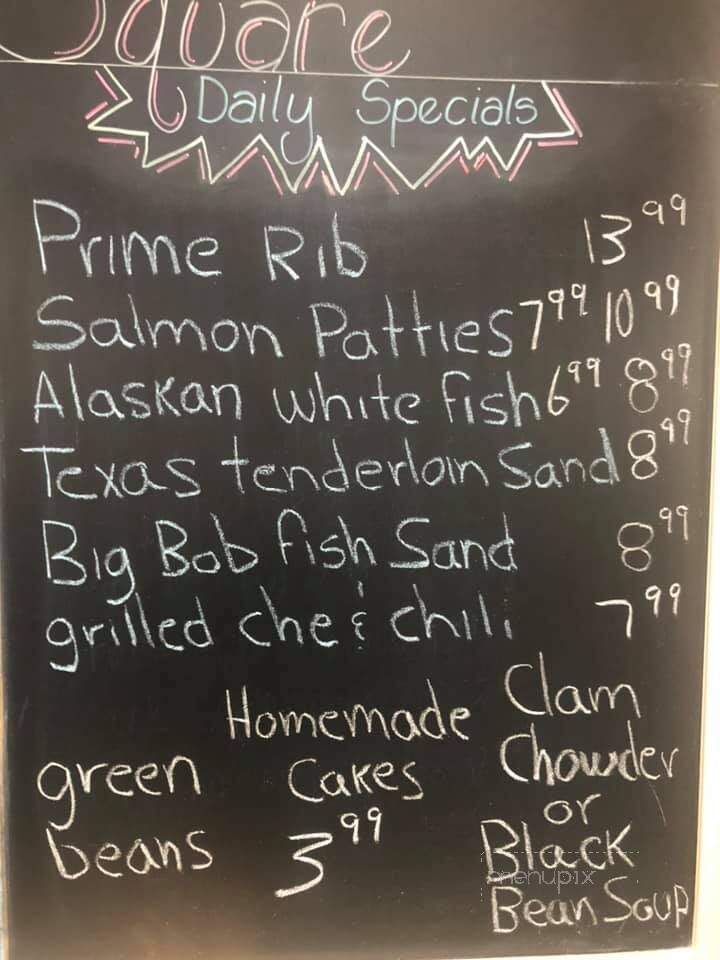 Square
Daily Specials
Prime Rib 13.99
Salmon Patties 7.99 10.99
Alaskan white fish 6.99 8.99
Texas tenderloin Sand 8.99
Big Bob fish Sand 8.99
grilled che & chili 7.99
green
beans
Homemade
Cakes
3.99
Clam
Chowder
or
Black
Bean Soup
menupix